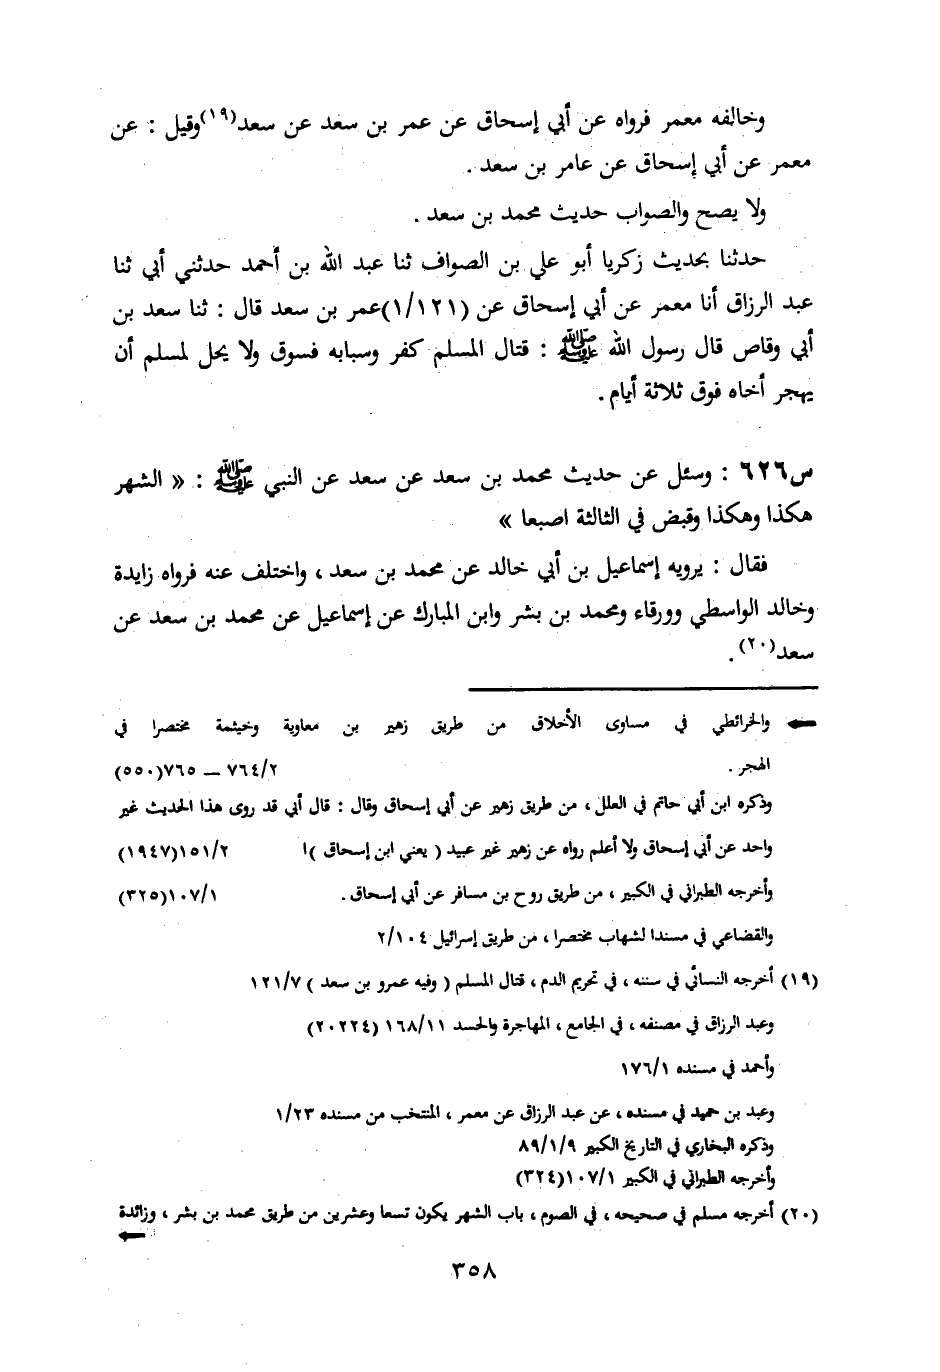 وخالفه معمر فرواه عن أبي إسحاق عن عمر بن سعد عن سعد(١٩)وقيل : عن
معمر عن أبي إسحاق عن عامر بن سعد .
ولا يصح والصواب حديث محمد بن سعد .
حدثنا بحديث زكريا أبو علي بن الصواف ثنا عبد الله بن أحمد حدثني أبي ثنا
عبد الرزاق أنا معمر عن أبي إسحاق عن (١/١٢١)عمر بن سعد قال : ثنا سعد بن
أبي وقاص قال رسول الله ﷺ : قتال المسلم كفر وسبابه فسوق ولا يحل لمسلم أن
يهجر أخاه فوق ثلاثة أيام .
س٦٢٦ : وسئل عن حديث محمد بن سعد عن سعد عن النبي ﷺ : « الشهر
هكذا وهكذا وقبض في الثالثة اصبعا »
فقال : يرويه إسماعيل بن أبي خالد عن محمد بن سعد ، واختلف عنه فرواه زايدة
وخالد الواسطي وورقاء ومحمد بن بشر وابن المبارك عن إسماعيل عن محمد بن سعد عن
سعد(٢٠) .
والخرائطي في مساوى الأخلاق من طريق زهير بن معاوية وخيثمة مختصرا في
الهجر . ٧٦٤/٢ – ٧٦٥(٥٥٠)
وذكره ابن أبي حاتم في العلل ، من طريق زهير عن أبي إسحاق وقال : قال أبي قد روى هذا الحديث غير
واحد عن أبي إسحاق ولا أعلم رواه عن زهير غير عبيد ( يعني ابن إسحاق )ا ١٥١/٢(١٩٤٧)
وأخرجه الطبراني في الكبير ، من طريق روح بن مسافر عن أبي إسحاق . ١٠٧/١(٣٢٥)
والقضاعي في مسندا لشهاب مختصرا ، من طريق إسرائيل ٢/١٠٤
(١٩) أخرجه النسائي في سننه ، في تحريم الدم ، قتال المسلم ( وفيه عمرو بن سعد ) ١٢١/٧
وعبد الرزاق في مصنفه ، في الجامع ، المهاجرة والحسد ١٦٨/١١ (٢٠٢٢٤)
وأحمد في مسنده ١٧٦/١
وعبد بن حميد في مسنده ، عن عبد الرزاق عن معمر ، المنتخب من مسنده ١/٢٣
وذكره البخاري في التاريخ الكبير ٨٩/١/٩
وأخرجه الطبراني في الكبير ١٠٧/١(٣٢٤)
(٢٠) أخرجه مسلم في صحيحه ، في الصوم ، باب الشهر يكون تسعا وعشرين من طريق محمد بن بشر ، وزائدة
٣٥٨